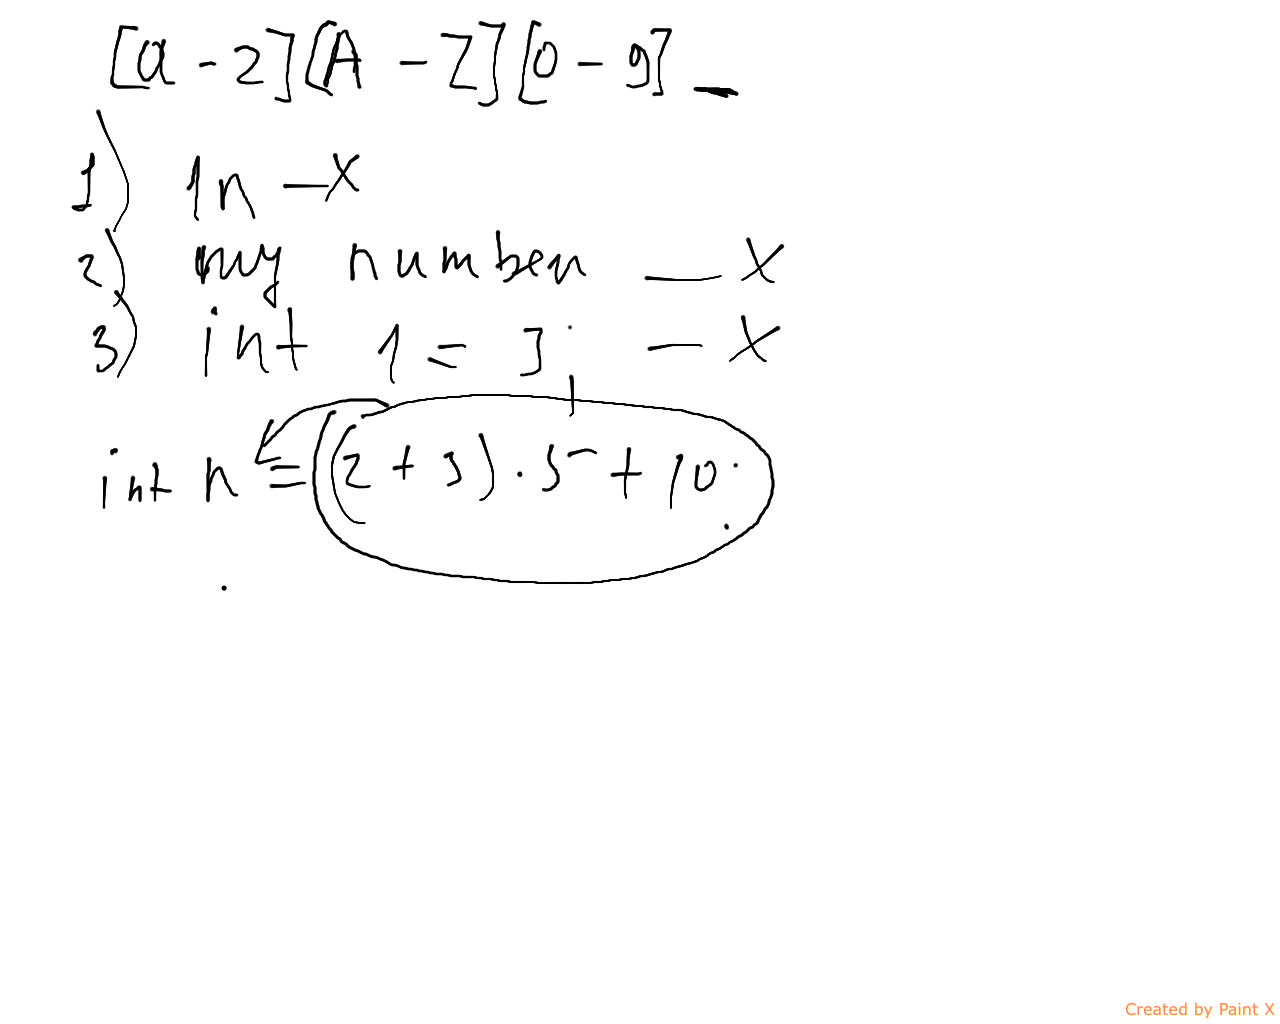 [a - z][A - Z][0 - 9] _
1) 1n - x
2) my number - x
3) int 1 = 3; - x
int n = (2 + 3) · 5 + 10;
Created by Paint X